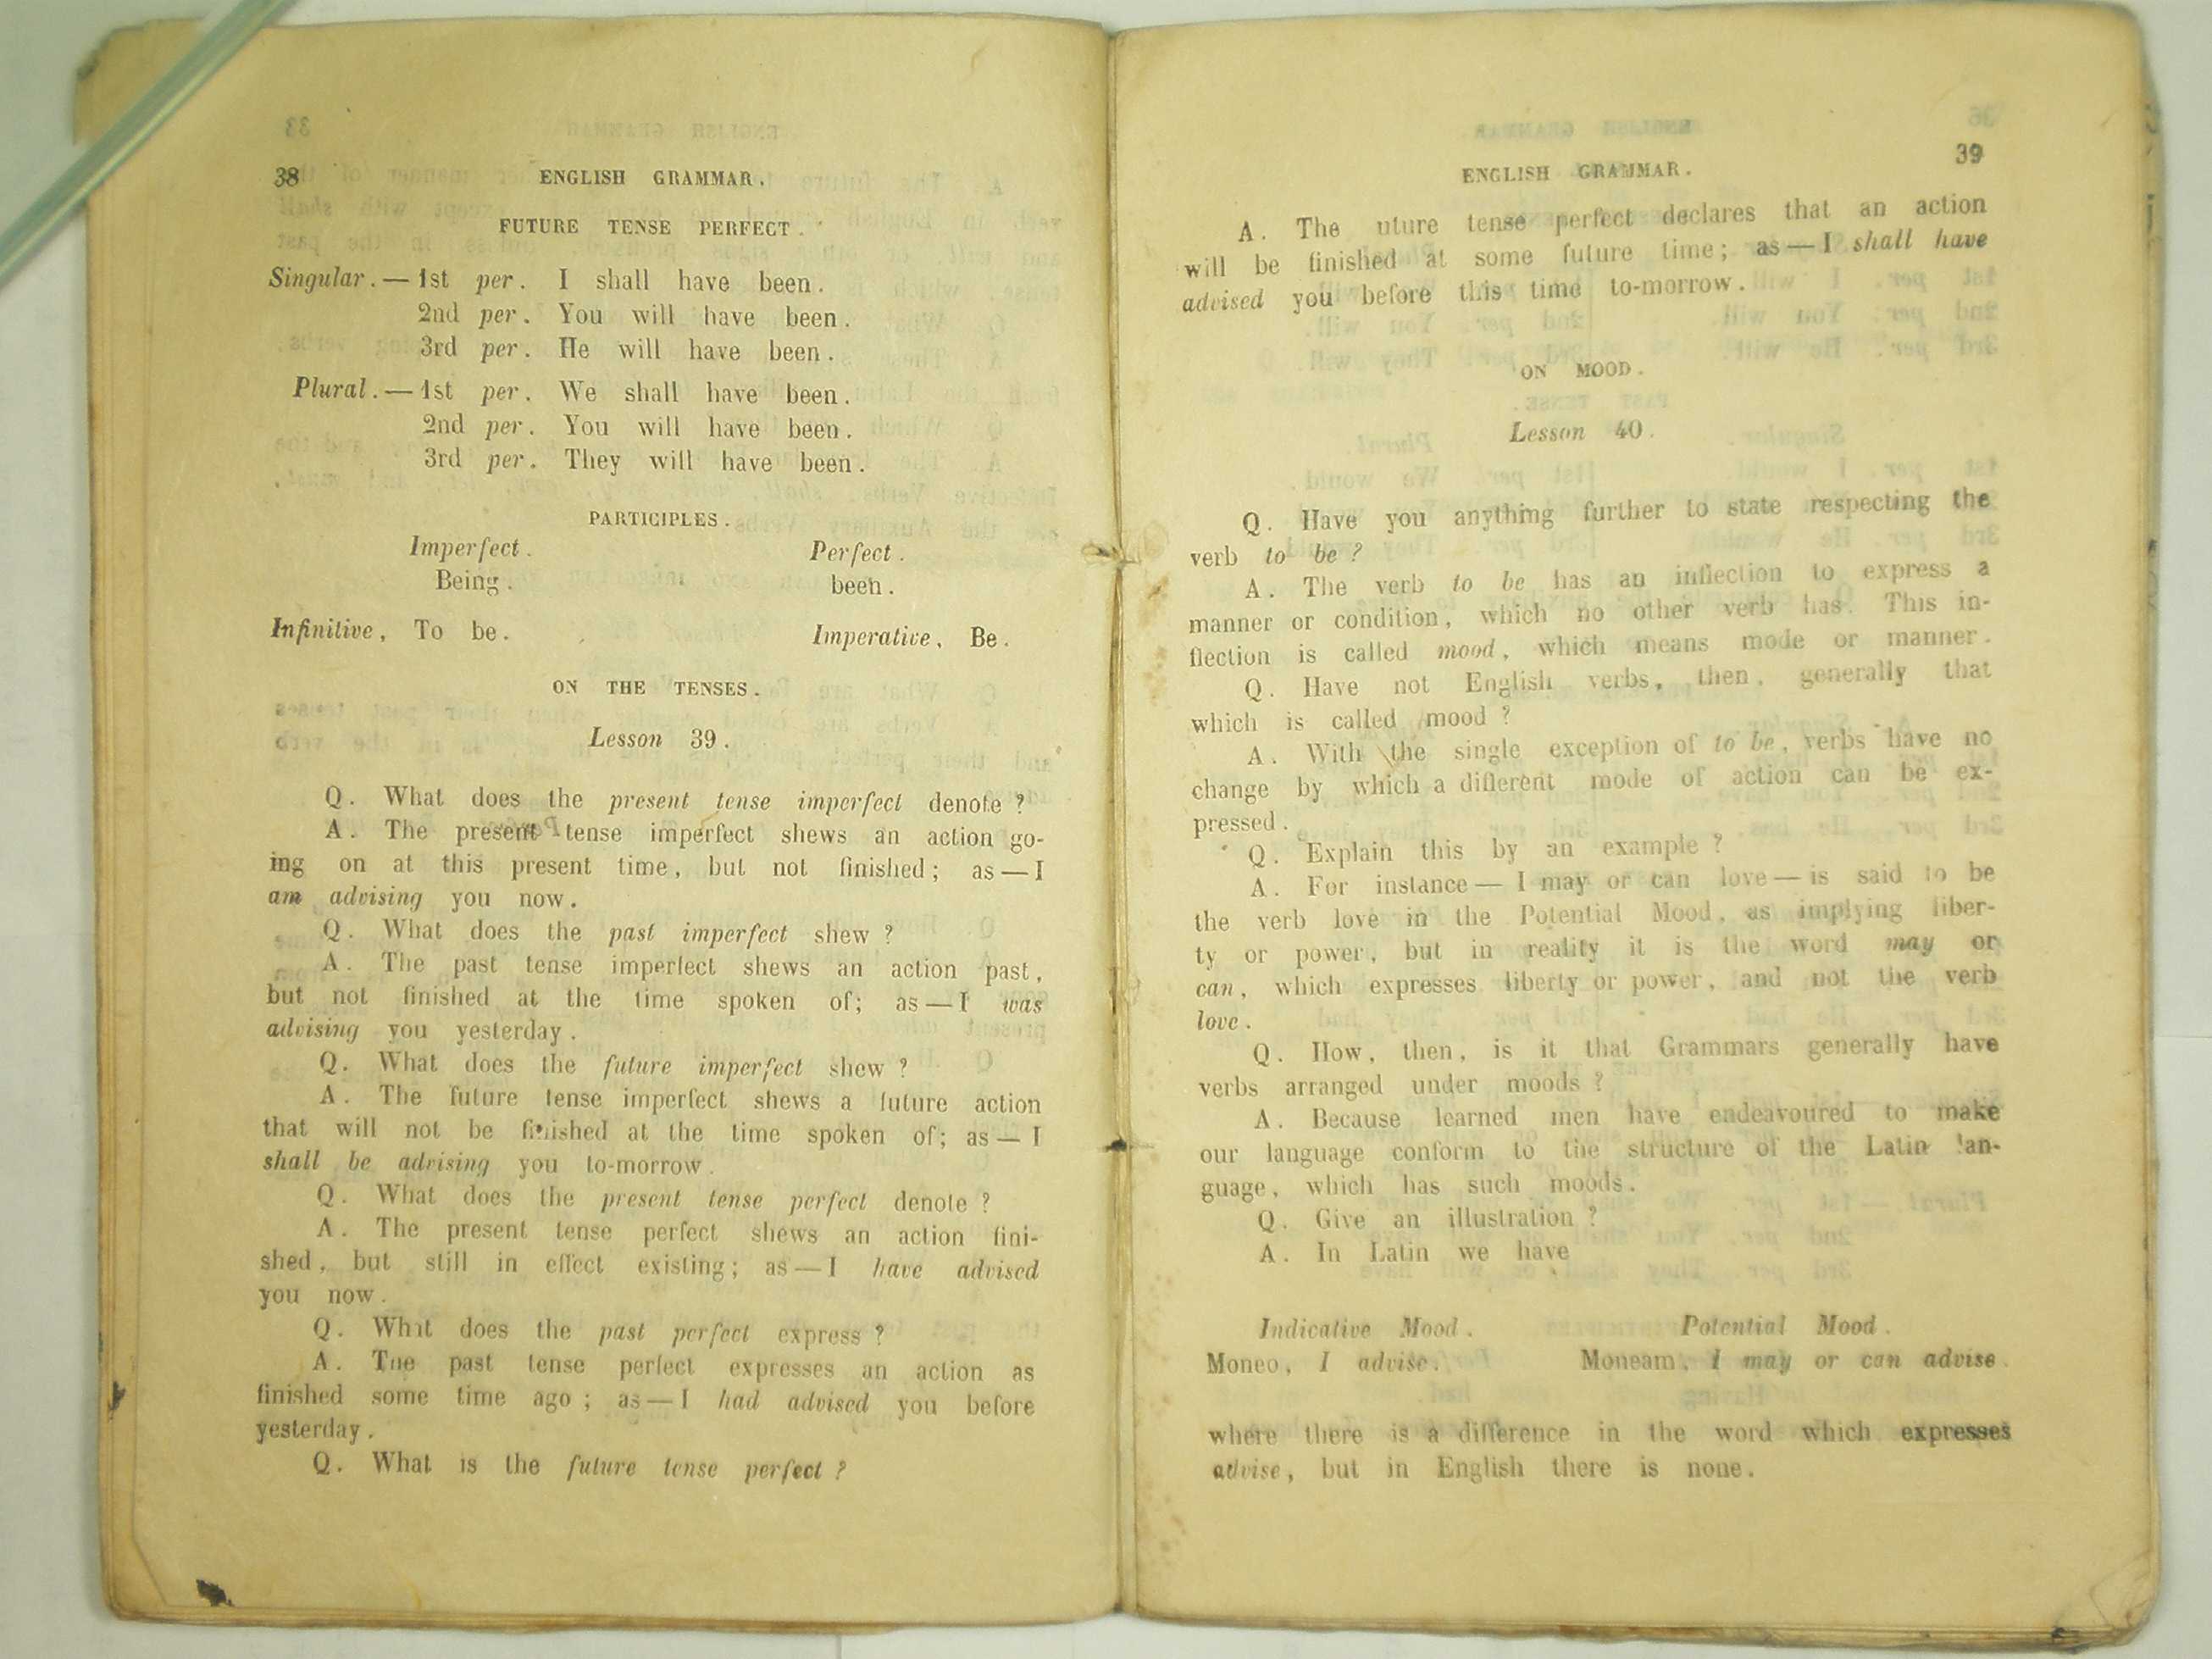 38 ENGLISH GRAMMAR.
FUTURE TENSE PERFECT.
Singular.—1st per. I shall have been.
2nd per. You will have been.
3rd per. He will have been.
Plural.—1st per. We shall have been.
2nd per. You will have been.
3rd per. They will have been.
PARTICIPLES.
Imperfect. Perfect.
Being. been.
Infinitive, To be. Imperative, Be.
ON THE TENSES.
Lesson 39.
Q. What does the present tense imperfect denote?
A. The present tense imperfect shews an action go-
ing on at this present time, but not finished; as—I
am advising you now.
Q. What does the past imperfect shew?
A. The past tense imperfect shews an action past,
but not finished at the time spoken of; as—I was
advising you yesterday.
Q. What does the future imperfect shew?
A. The future tense imperfect shews a future action
that will not be finished at the time spoken of; as—I
shall be advising you to-morrow.
Q. What does the present tense perfect denote?
A. The present tense perfect shews an action fini-
shed, but still in effect existing; as—I have advised
you now.
Q. What does the past perfect express?
A. The past tense perfect expresses an action as
finished some time ago; as—I had advised you before
yesterday.
Q. What is the future tense perfect?
39
ENGLISH GRAMMAR.
A. The uture tense perfect declares that an action
will be finished at some future time; as—I shall have
advised you before this time to-morrow.
ON MOOD.
Lesson 40.
Q. Have you anything further to state respecting the
verb to be?
A. The verb to be has an inflection to express a
manner or condition, which no other verb has. This in-
flection is called mood, which means mode or manner.
Q. Have not English verbs, then, generally that
which is called mood?
A. With the single exception of to be, verbs have no
change by which a different mode of action can be ex-
pressed.
Q. Explain this by an example?
A. For instance—I may or can love—is said to be
the verb love in the Potential Mood, as implying liber-
ty or power, but in reality it is the word may or
can, which expresses liberty or power, and not the verb
love.
Q. How, then, is it that Grammars generally have
verbs arranged under moods?
A. Because learned men have endeavoured to make
our language conform to the structure of the Latin lan-
guage, which has such moods.
Q. Give an illustration?
A. In Latin we have
Indicative Mood. Potential Mood.
Moneo, I advise. Moneam, I may or can advise.
where there is a difference in the word which expresses
advise, but in English there is none.